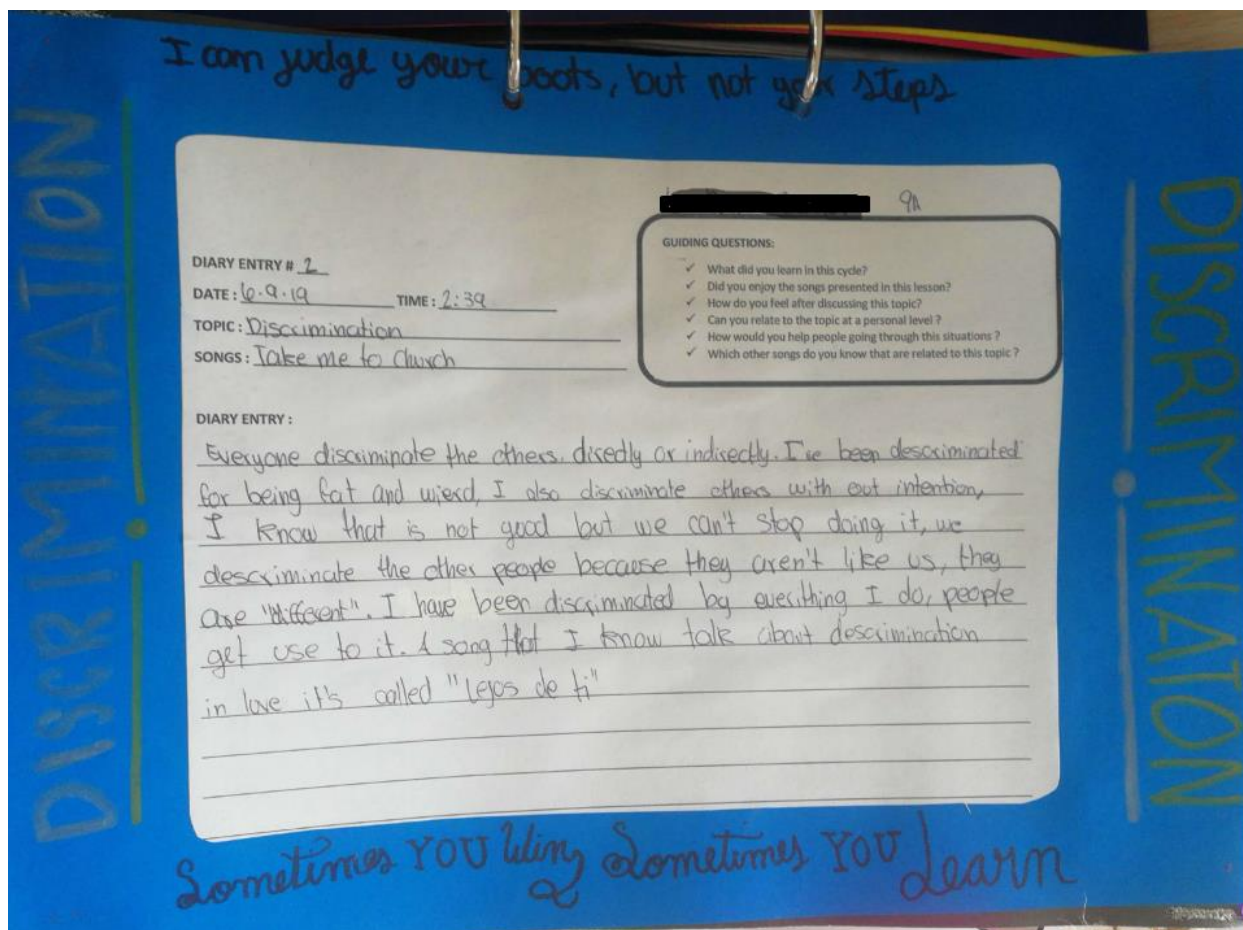 I can judge your boots, but not your steps
DISCRIMINATION
9A
GUIDING QUESTIONS:
✓ What did you learn in this cycle?
✓ Did you enjoy the songs presented in this lesson?
✓ How do you feel after discussing this topic?
✓ Can you relate to the topic at a personal level ?
✓ How would you help people going through this situations ?
✓ Which other songs do you know that are related to this topic ?
DIARY ENTRY # 2
DATE : 6-9-19 TIME : 2:39
TOPIC : Discrimination
SONGS : Take me to church
DIARY ENTRY :
Everyone discriminate the others. directly or indirectly. I've been descriminated
for being fat and wierd, I also discriminate others with out intention,
I know that is not good but we can't stop doing it, we
descriminate the other people because they aren't like us, they
are "different". I have been discriminated by everithing I do, people
get use to it. A song that I know talk about descrimination
in love it's called "Lejos de ti"
DISCRIMINATON
Sometimes YOU Win, Sometimes YOU Learn